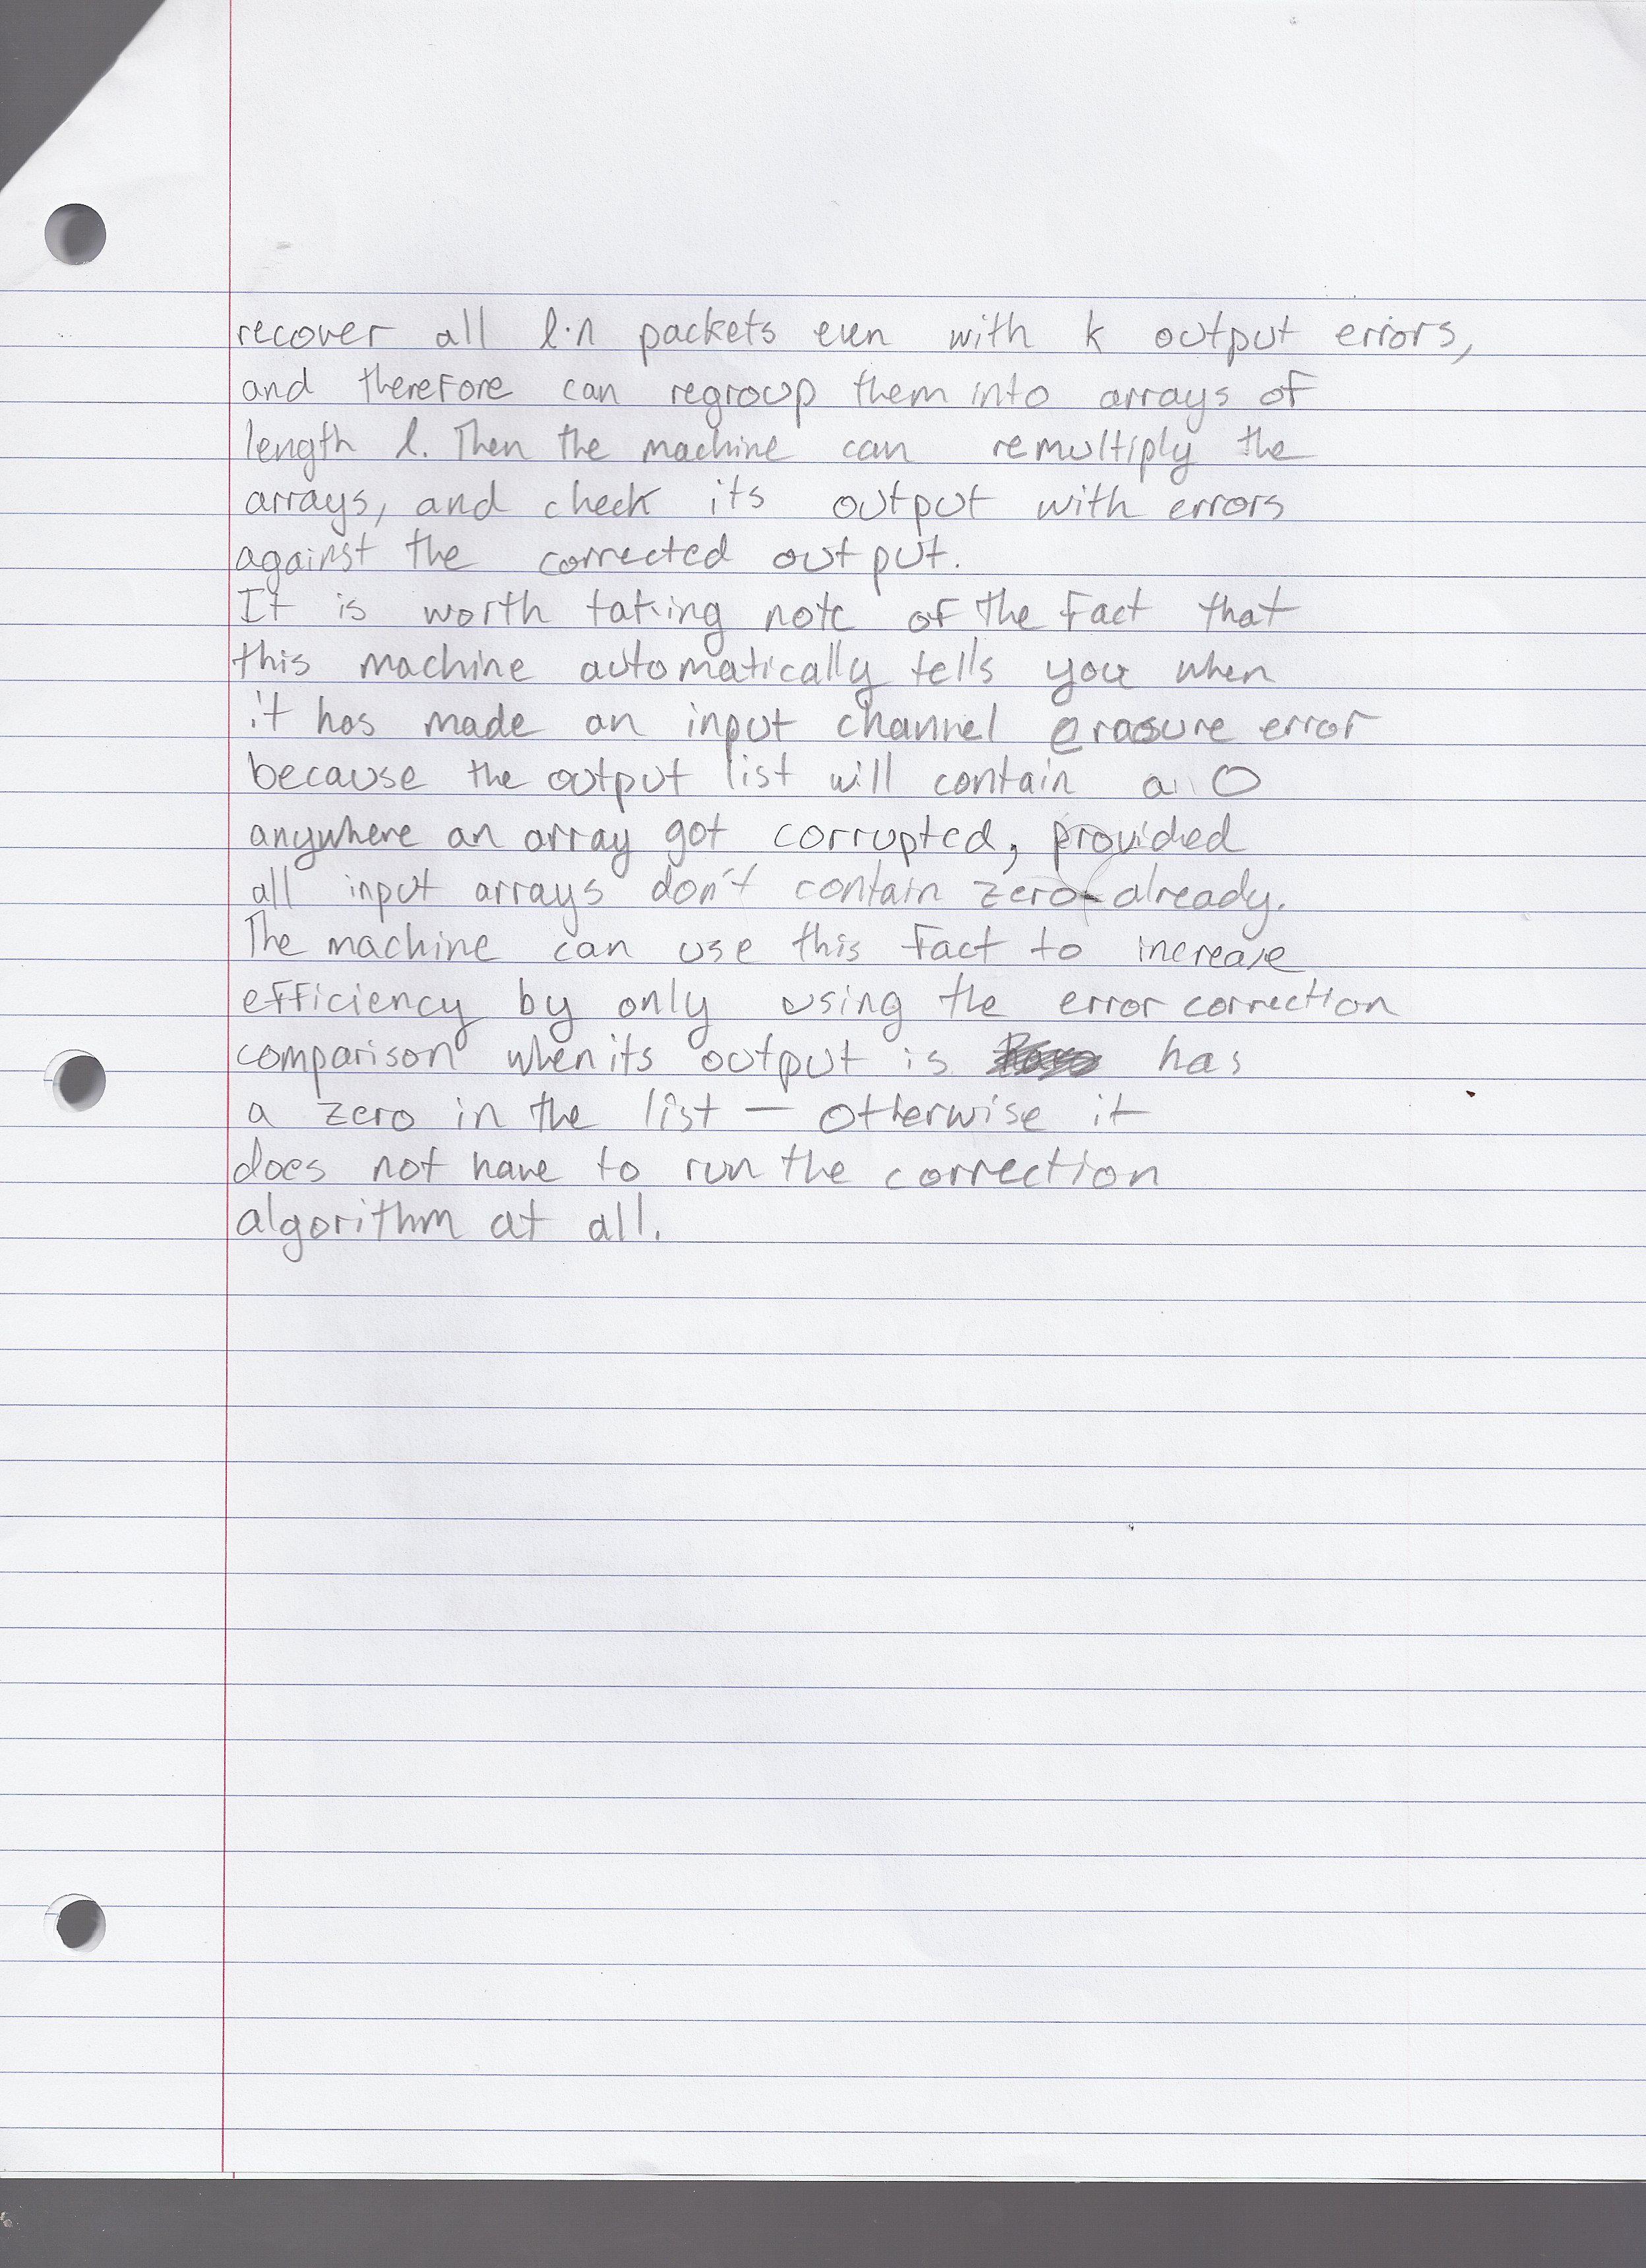 recover all l·n packets even with k output errors,
and therefore can regroup them into arrays of
length l. Then the machine can remultiply the
arrays, and check its output with errors
against the corrected output.
It is worth taking note of the fact that
this machine automatically tells you when
it has made an input channel erasure error
because the output list will contain a 0
anywhere an array got corrupted, provided
all input arrays don't contain zero already.
The machine can use this fact to increase
efficiency by only using the error correction
comparison when its output is has
a zero in the list — otherwise it
does not have to run the correction
algorithm at all.